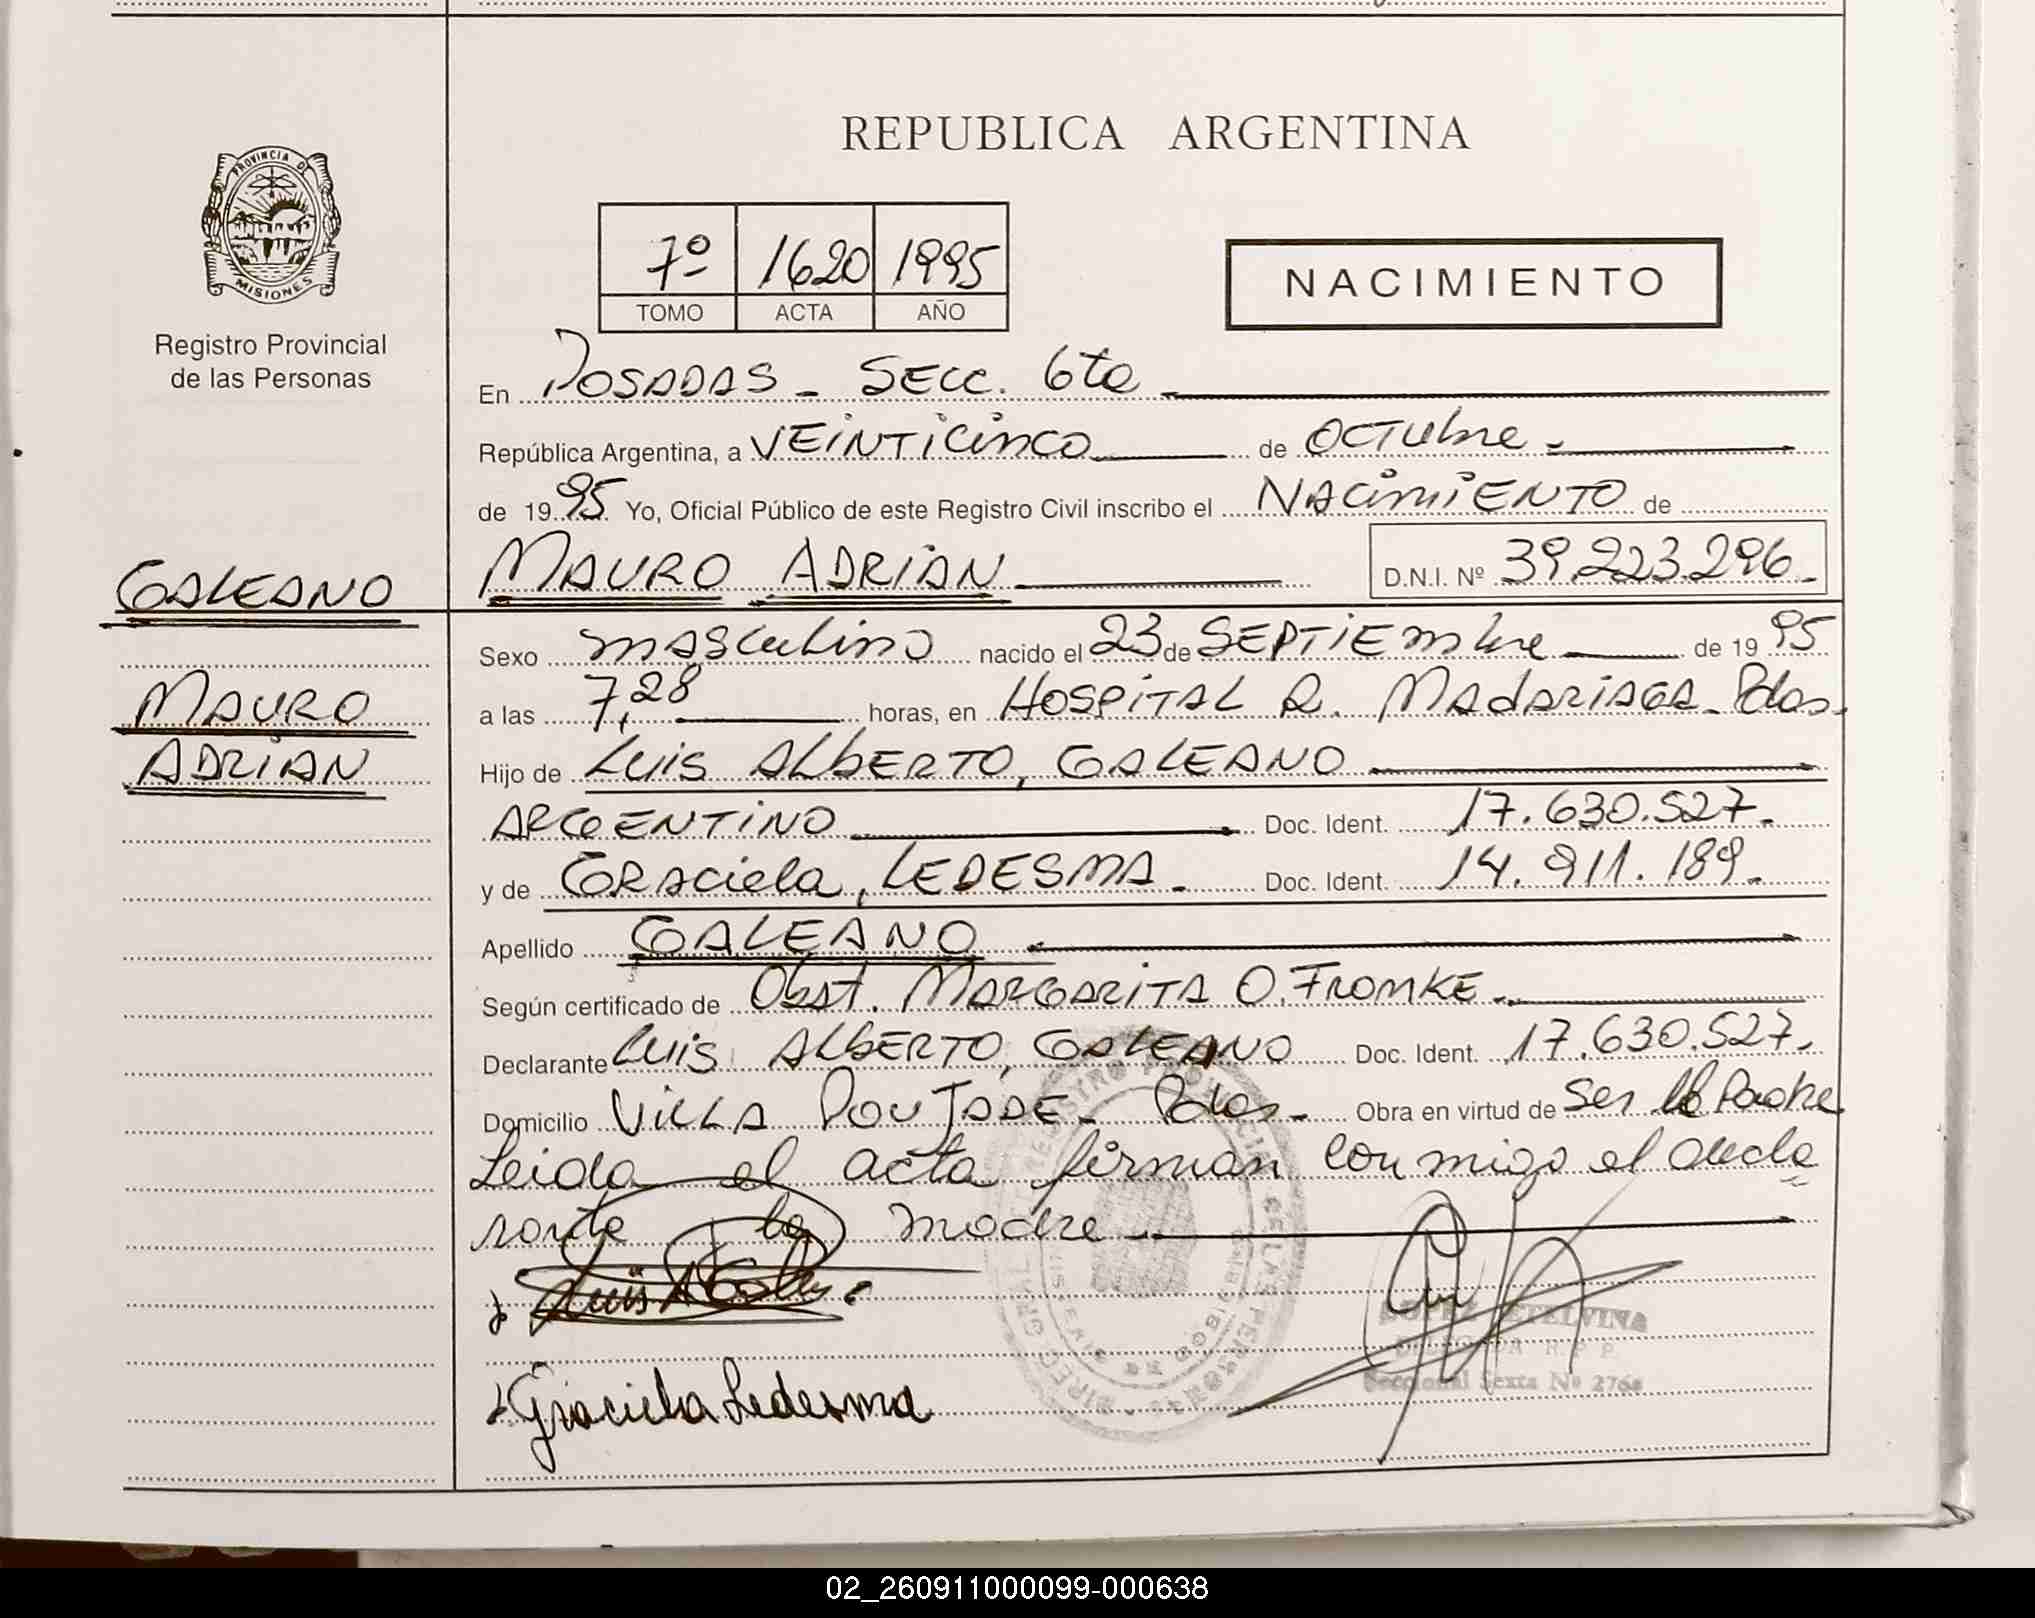 REPUBLICA ARGENTINA
PROVINCIA DE
MISIONES
Registro Provincial
de las Personas
7º 1620 1995
TOMO ACTA AÑO
NACIMIENTO
En POSADAS - SECC. 6ta
República Argentina, a VEINTICINCO de OCTUbre.
de 1995 Yo, Oficial Público de este Registro Civil inscribo el NACIMIENTO de
GALEANO
MAURO ADRIAN D.N.I. Nº 39.223.296.
Sexo masculino nacido el 23 de SEPTIEmbre de 1995
MAURO
a las 7,28 horas, en HOSPITAL R. MADARIAGA. Pdas.
ADRIAN
Hijo de LUIS ALBERTO, GALEANO
ARGENTINO Doc. Ident. 17.630.527.
y de GRAciela, LEDESMA. Doc. Ident. 14.911.189.
Apellido GALEANO
Según certificado de Obst. MARGARITA O. FROMKE.
Declarante LUIS ALBERTO, GALEANO Doc. Ident. 17.630.527.
Domicilio VILLA POUJADE - Pdas. Obra en virtud de Ser el Padre
Leida el acta firman conmigo el decla
rante la madre
Luis A
Graciela Ledesma
LOPEZ ETELVINA
DELEGADA R. P. P.
Seccional Sexta Nº
02_260911000099-000638